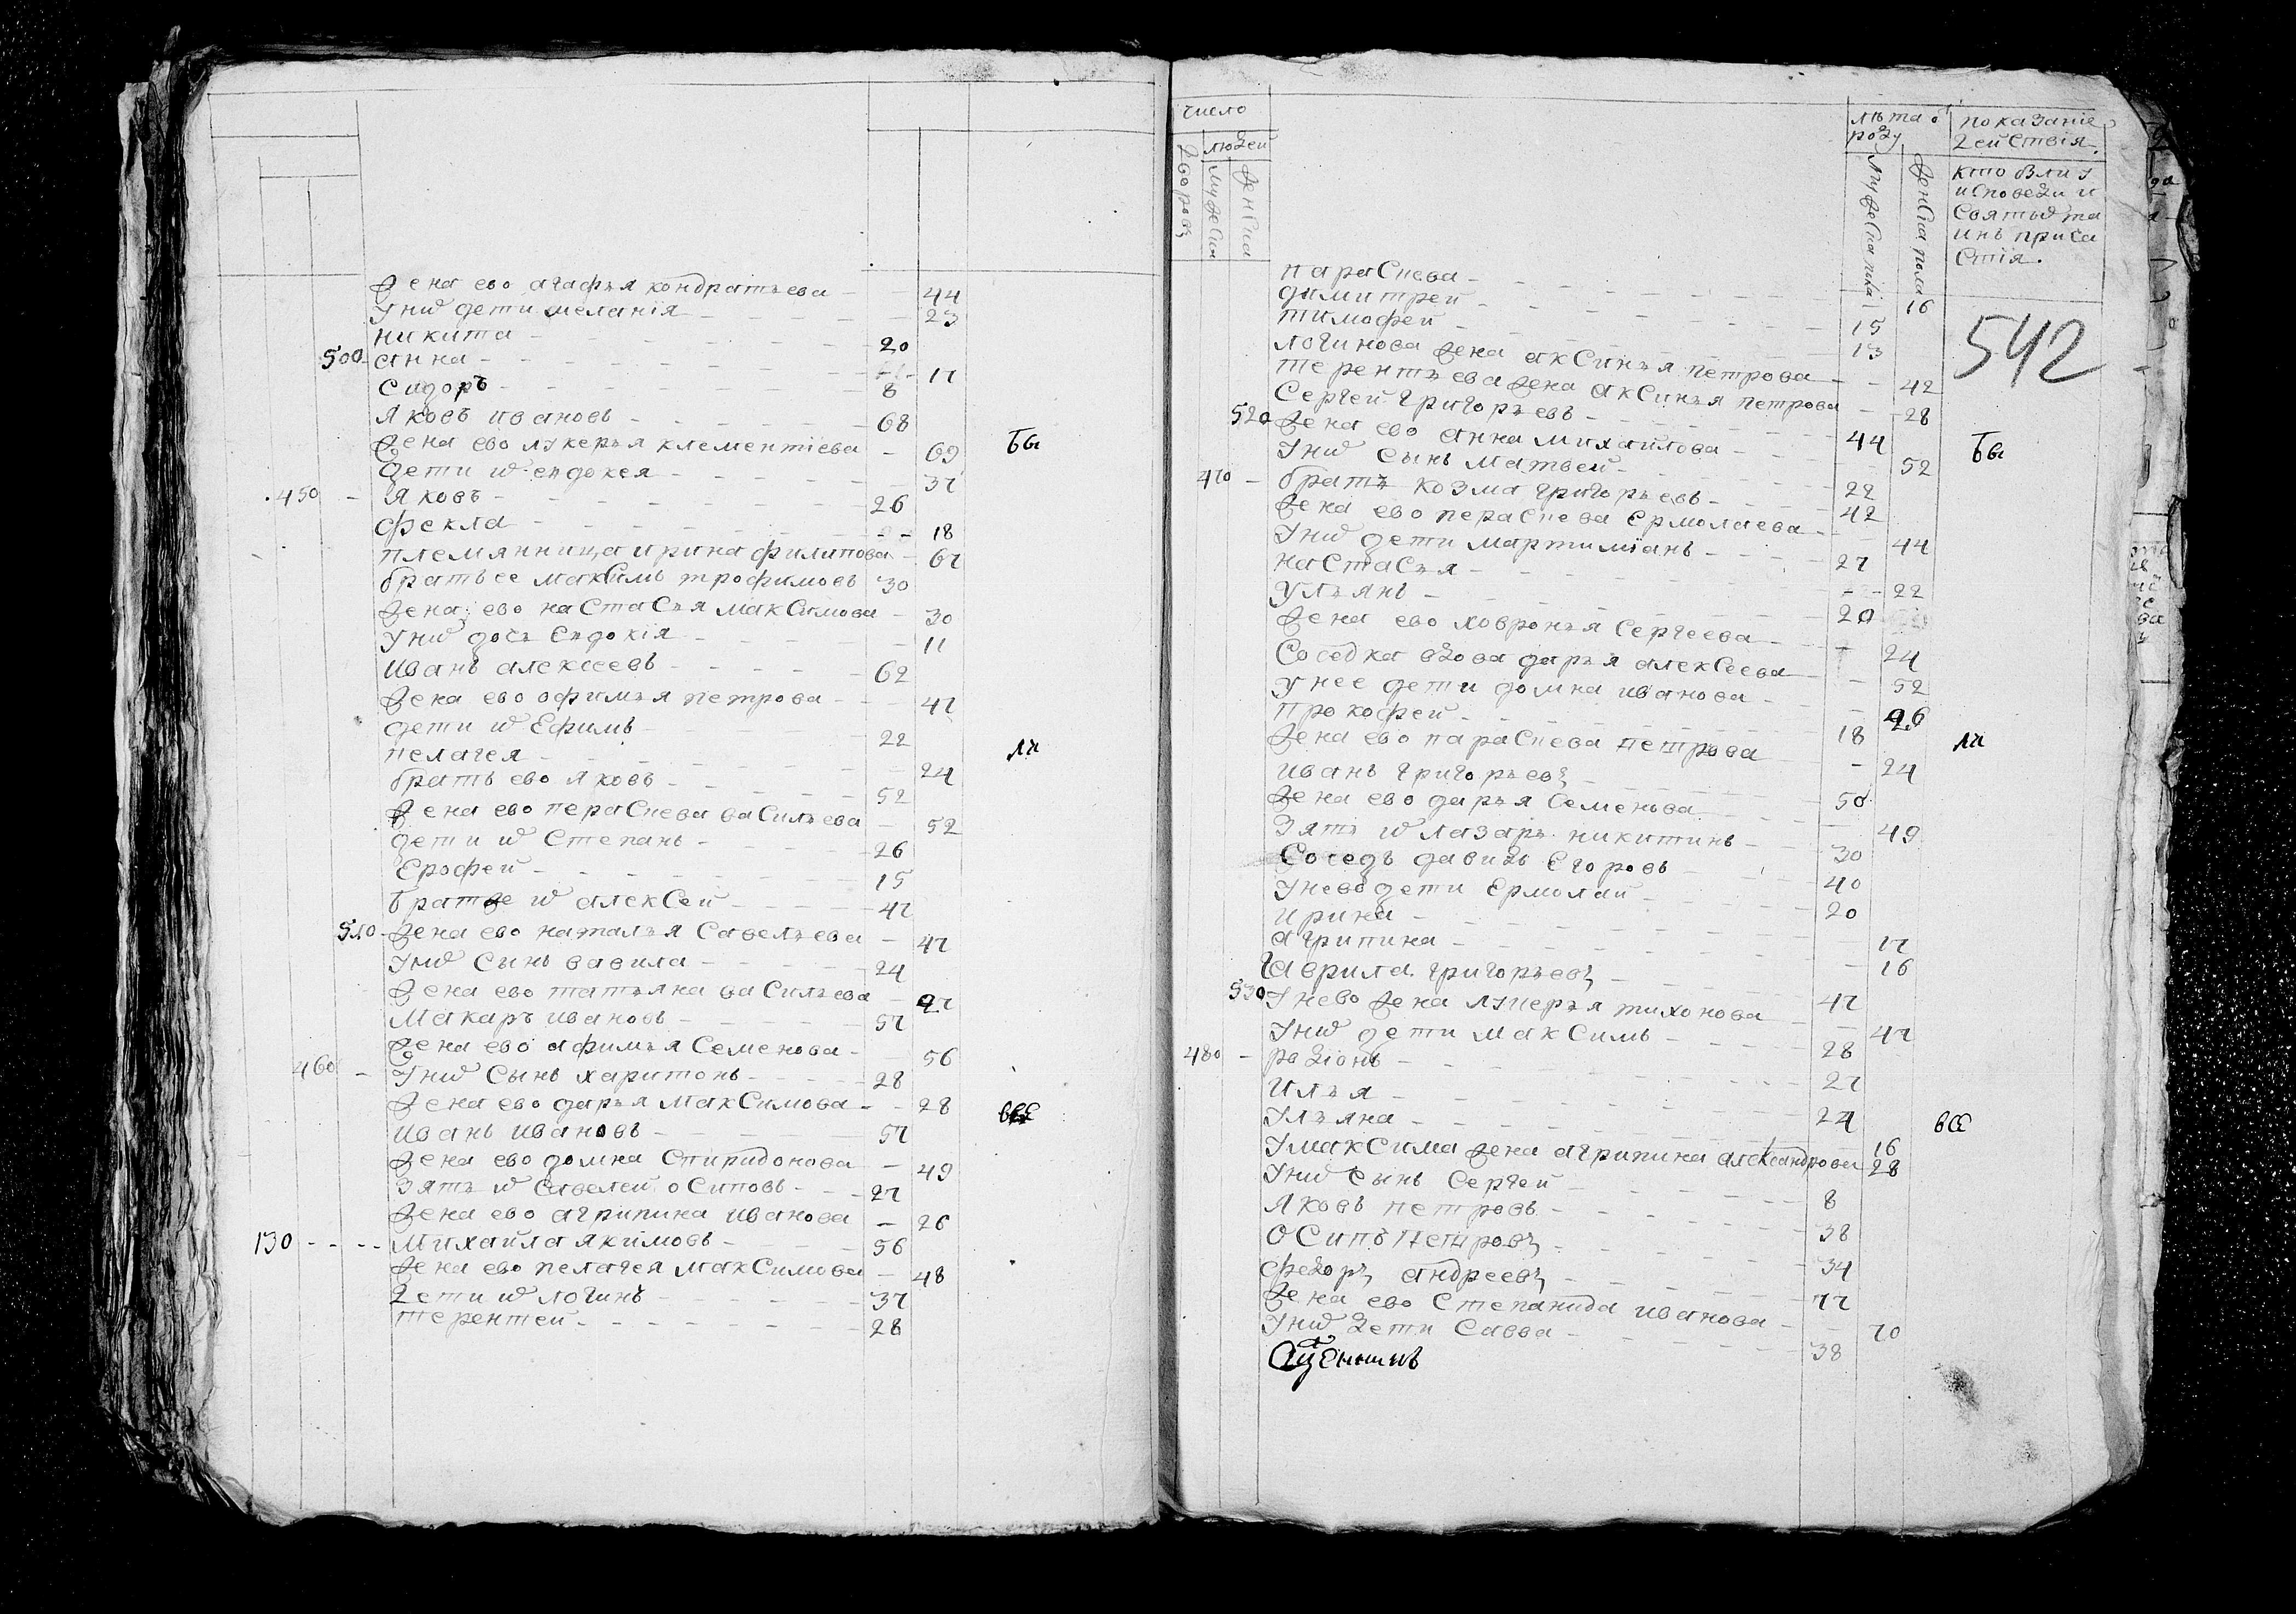 жена ево агафья кондратьева - - 44
у них дети меланiя - 23
никита - 20
500 анна - 17
сидоръ - 8
Яковъ ивановъ - 68
жена ево лукерья клементiева - 69 бы
дети их ендокея - 37
450 - яковъ - 26
фекла - 18
племянница ирина филипова - 67
братъ ее максимъ трофимовъ 30
жена ево настасья максимова - 30
у них дочь евдокiя - 11
иванъ алексеевъ - 62
жена ево офимья петрова - 47
дети их Ефимъ - 22
пелагея - 24 ли
братъ ево яковъ - 52
жена ево пераскева васильева - 52
дети их степанъ - 26
Ерофей - 15
братже их алексей - 47
510 - жена ево наталья савельева - 47
у них сынъ вавила - 24
жена ево татьяна васильева - 27
Макаръ ивановъ - 57
жена ево афимья семенова - 56
460 - у них сынъ харитонъ - 28
жена ево дарья максимова - 28 все
иванъ ивановъ - 57
жена ево домна спиридонова - 49
зять их савелей осиповъ - 27
жена ево агрипина иванова - 26
130 - - - - михаила якимовъ - 56
жена ево пелагея максимова - 48
дети их логинъ - 37
терентей - 28
число
людей
дворовъ
мужеска
женска
лѣта о
роду
мужеска пола
женска пола
показанiе
действiя.
кто были у
исповеди и
святыхта
инъ прича
стiя.
542
параскева - 16
димитрей - 15
тимофей - 13
логинова жена аксинья петрова - - 42
терентьева жена аксинья петрова - 28
сергей григорьевъ - 44
520 жена ево анна михайлова - 52 бы
у них сынъ матвей - 22
470 - братъ козма григорьевъ - 42
жена ево пераскева ермолаева - 44
у них дети мартимiанъ - 27
настасья - 22
ульянъ - 20
жена ево ховронья сергеева - 24
соседка вдова дарья алексеева - 52
у нее дети домна иванова - 26
прокофей - 18
жена ево параскева петрова - 24 ли
иванъ григорьевъ - 50
жена ево дарья семенова - 49
зять их лазарь никитинъ - 30
соседъ давидъ егоровъ - 40
у нево дети ермолай - 20
ирина - 17
агрипина - 16
гаврила григорьевъ - 47
530 у нево жена лукерья тихонова - 47
у них дети максимъ - 28
480 - радiонъ - 27
илья - 24
ульяна - 16 все
у максима жена агрипина александрова 28
у них сынъ сергей - 8
яковъ петровъ - 38
осипъ петровъ - 34
федоръ андреевъ - 77
жена ево степанида иванова - 70
у них дети савва - 38